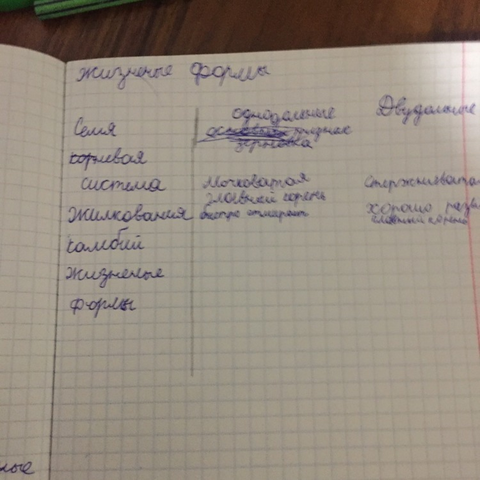 Жизненые формы
однодольные Двудольные
Семя признак
зерновка
корневая
система Мочковатая Стержневая
главный корень
Жилкования быстро отмирает хорошо разви
главный корень
камбий
Жизненые
формы
ные